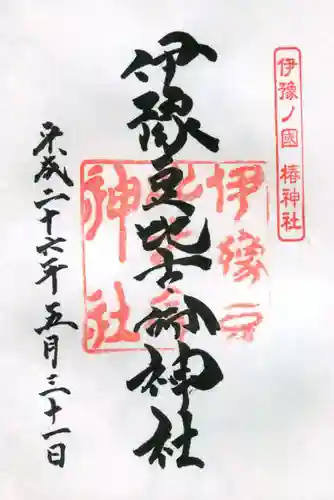 伊豫ノ國 椿神社
伊豫豆比古命神社
伊豫豆
比古命
神社
平成二十六年五月三十一日